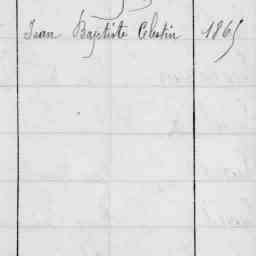 Jean Baptiste Celestin 1865